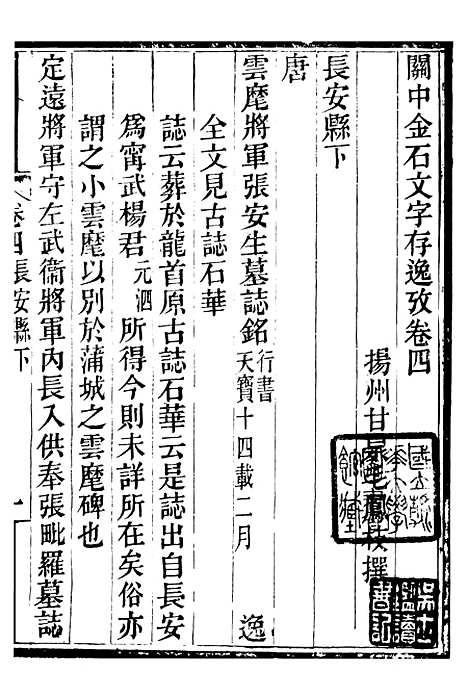 關中金石文字存逸攷卷四
揚州甘泉毛鳳枝撰
長安縣下
唐
雲麾將軍張安生墓誌銘行書天寶十四載二月 逸
全文見古誌石華
誌云葬於龍首原古誌石華云是誌出自長安
爲甯武楊君元泗所得今則未詳所在矣俗亦
謂之小雲麾以別於蒲城之雲麾碑也
定遠將軍守左武衞將軍內長入供奉張毗羅墓誌
卷四長安縣下
一
國立清華大學圖書館藏